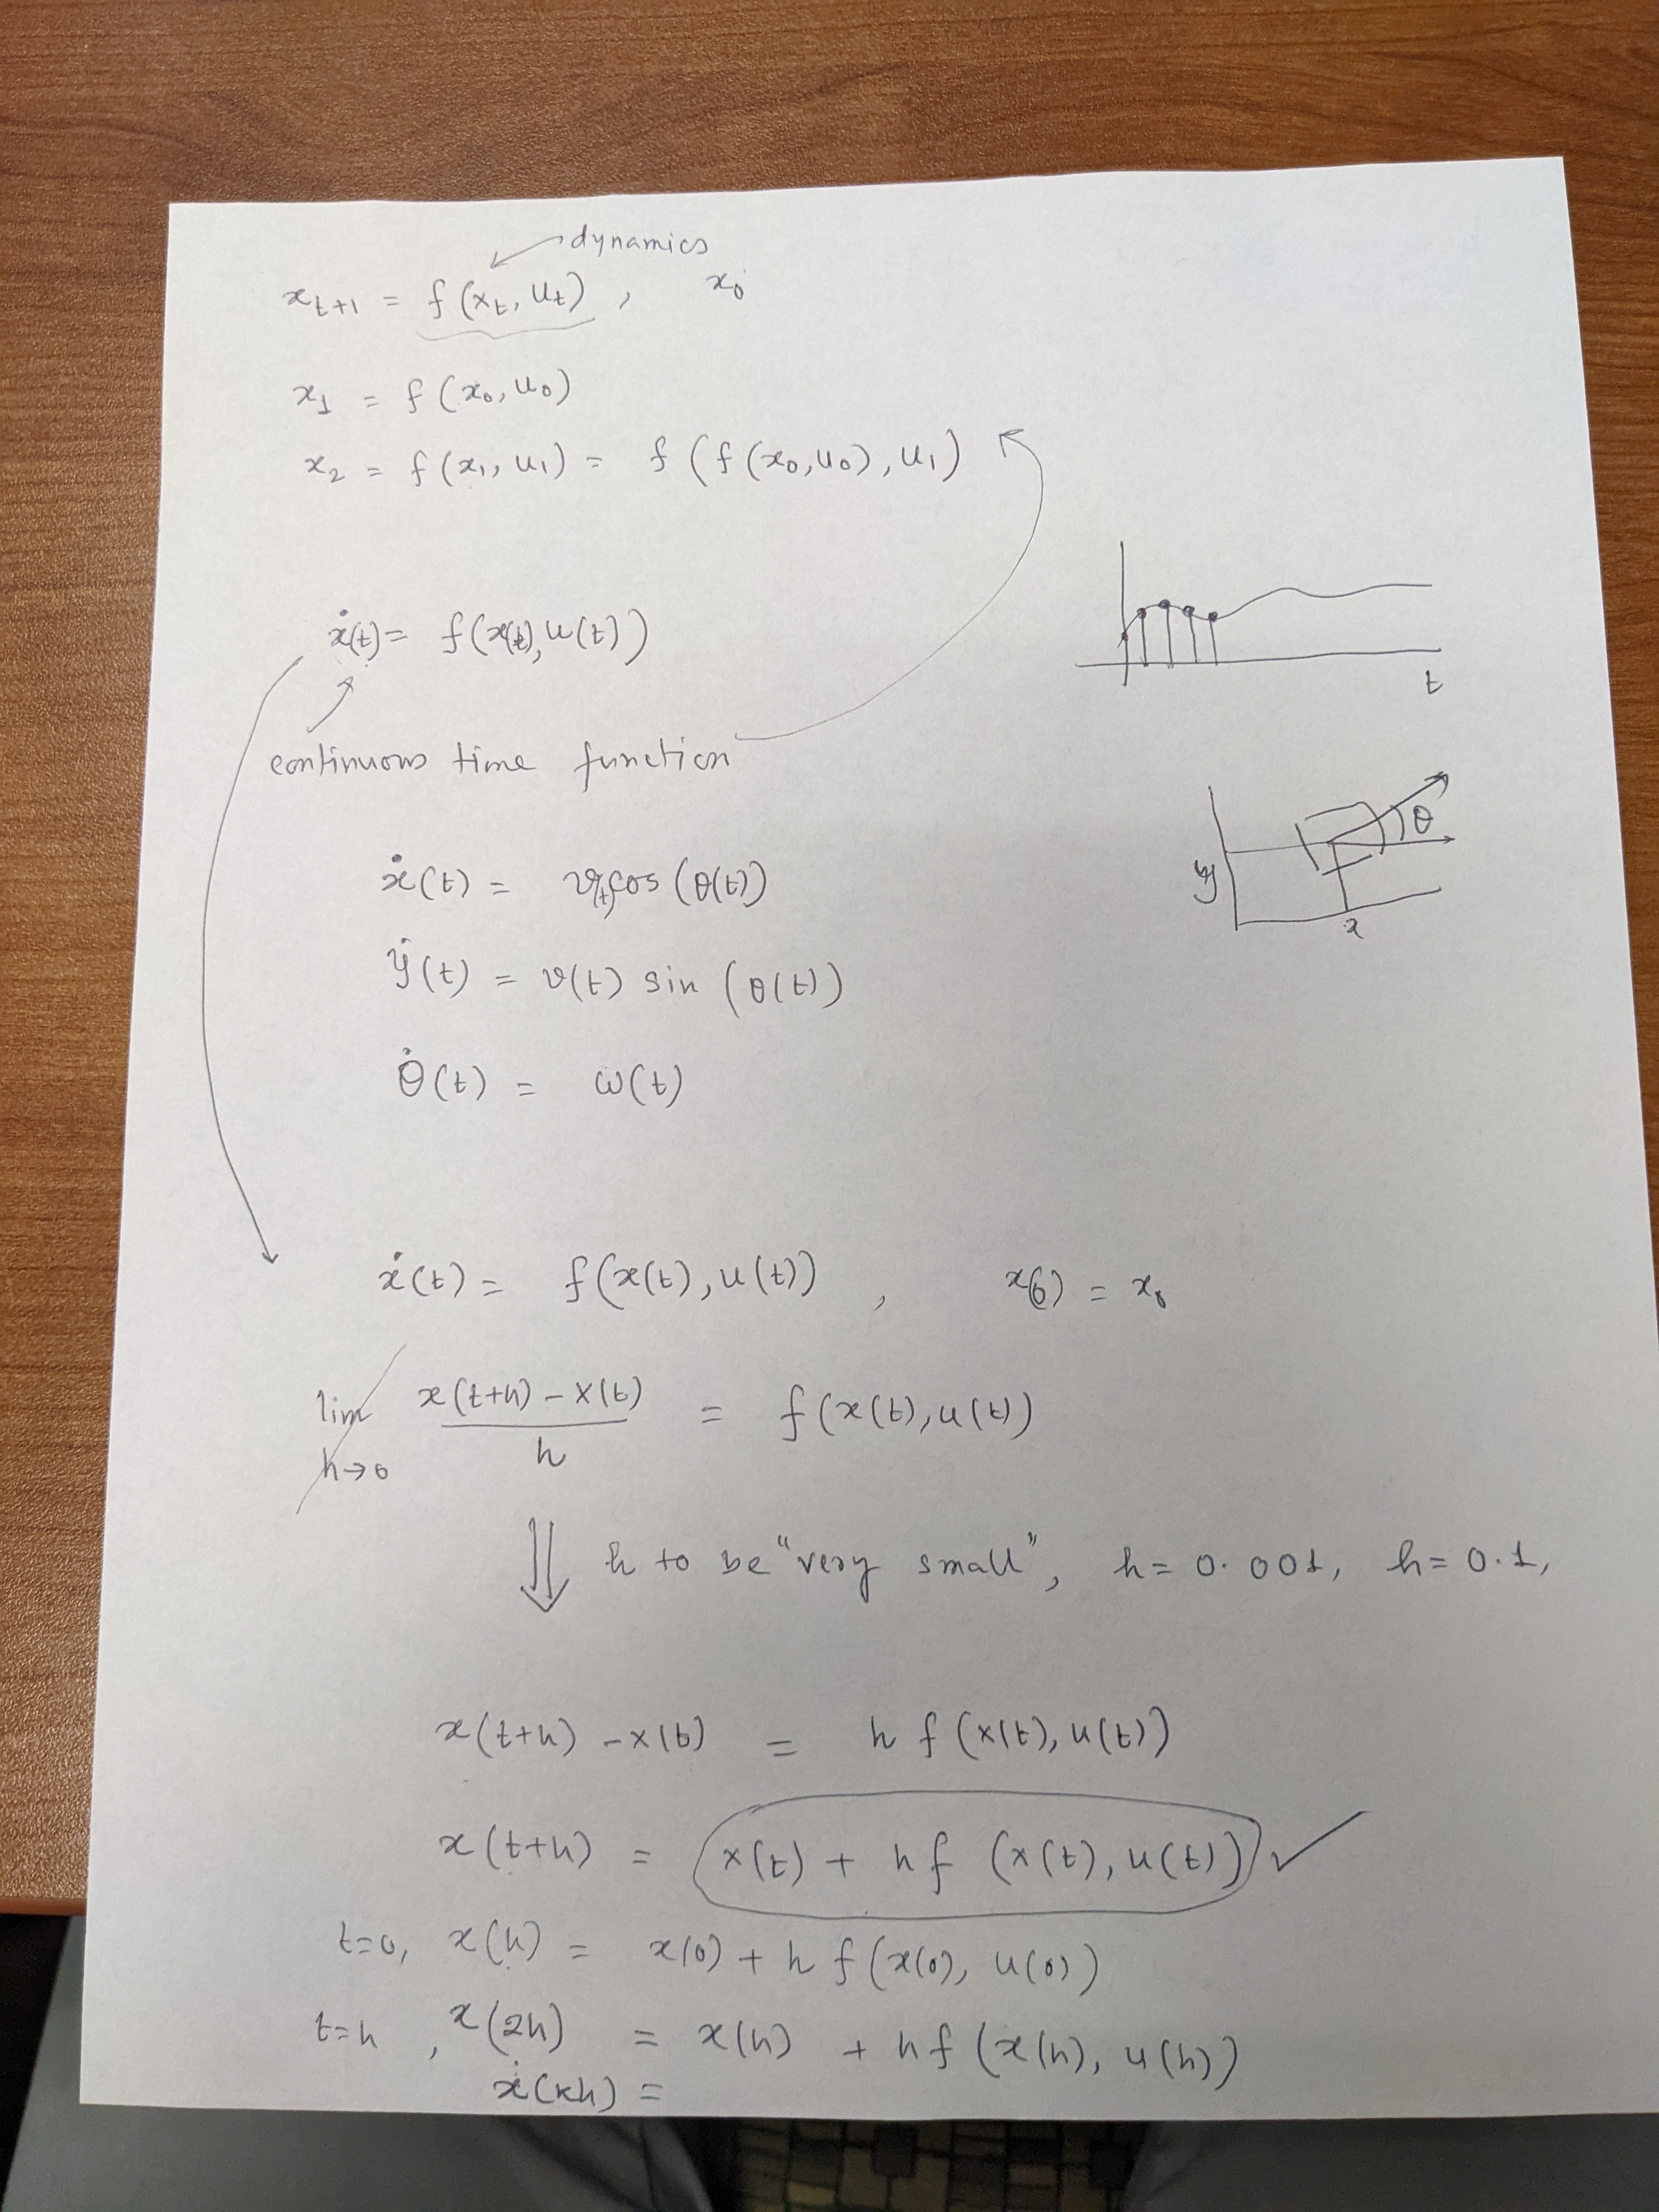 dynamics
x_{t+1} = f(x_t, u_t) , x_0
x_1 = f(x_0, u_0)
x_2 = f(x_1, u_1) = f(f(x_0, u_0), u_1)
ẋ(t) = f(x(t), u(t))
t
continuous time function
θ
y
x
ẋ(t) = v(t) cos(θ(t))
ẏ(t) = v(t) sin(θ(t))
θ̇(t) = ω(t)
ẋ(t) = f(x(t), u(t)) , x(0) = x_0
lim h→0 (x(t+h) - x(t)) / h = f(x(t), u(t))
⇓ h to be "very small", h = 0.001, h = 0.1,
x(t+h) - x(t) = h f(x(t), u(t))
x(t+h) = x(t) + h f(x(t), u(t)) ✓
t=0, x(h) = x(0) + h f(x(0), u(0))
t=h , x(2h) = x(h) + h f(x(h), u(h))
ẋ(kh) =